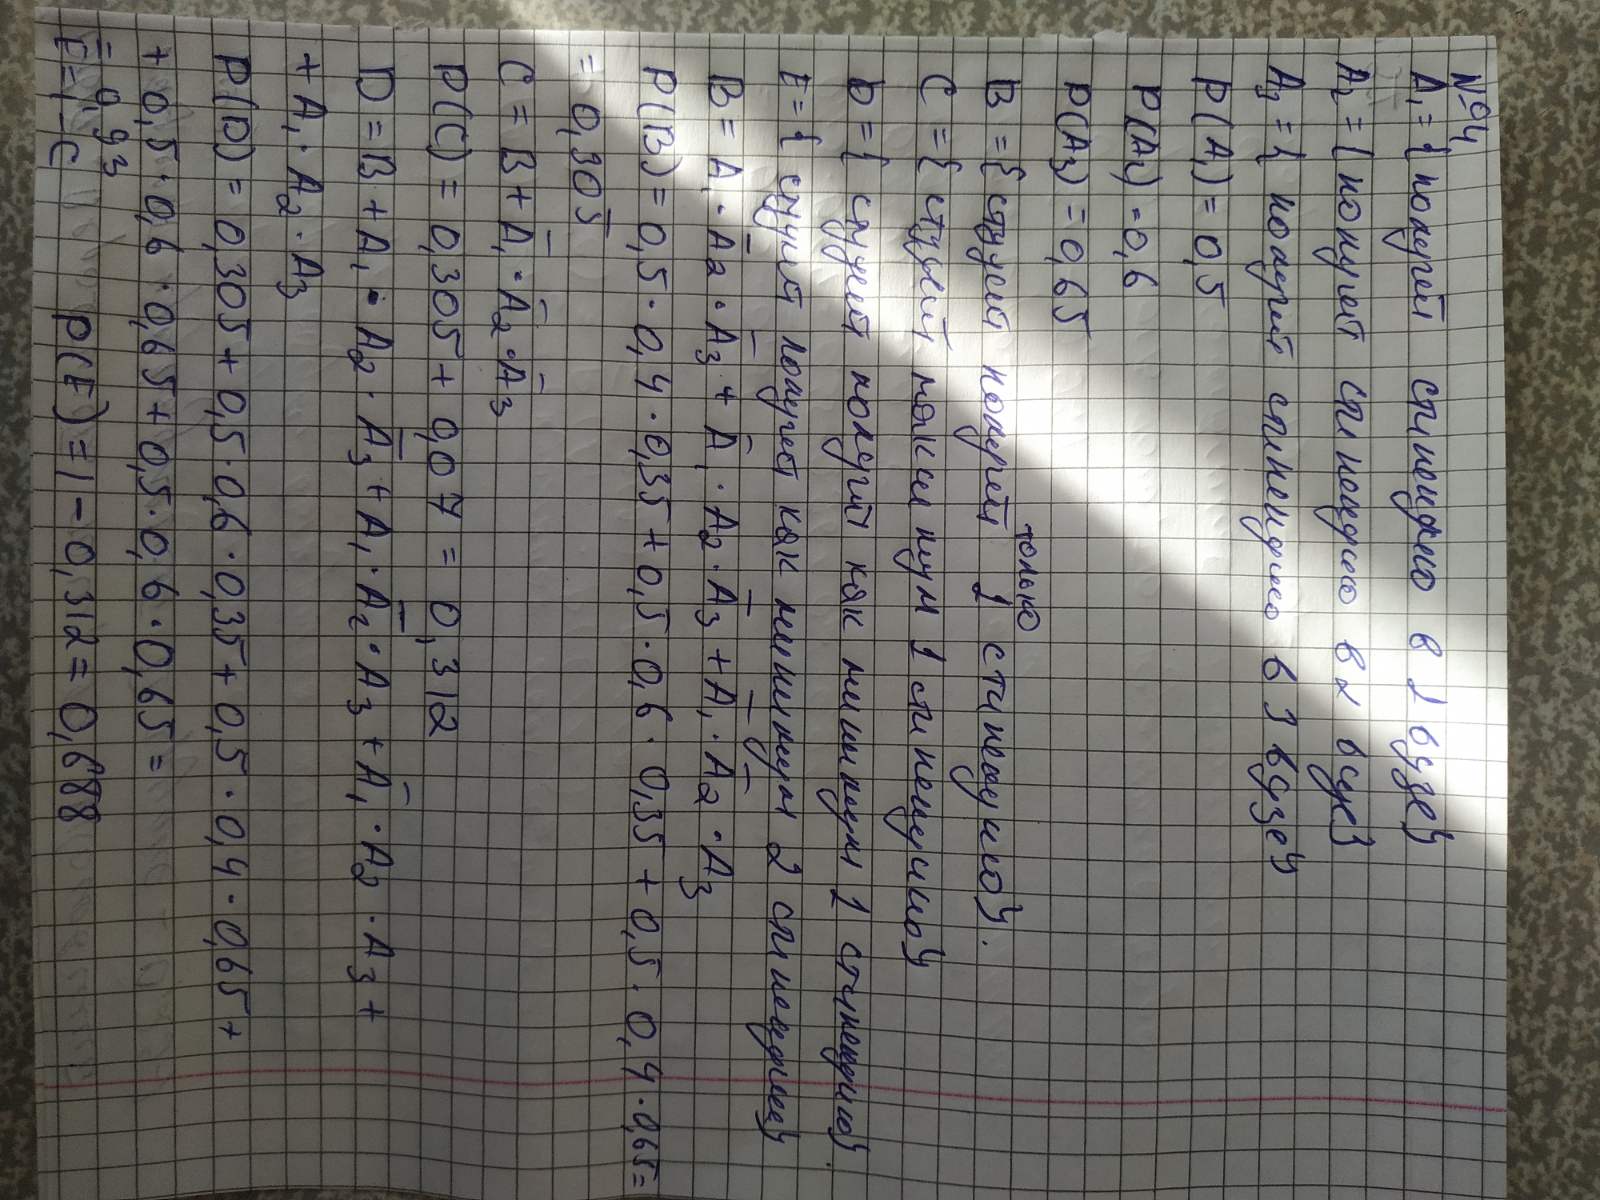 №4
A₁ = {получит стипендию в 1 вузе}
A₂ = {получит стипендию в 2 вузе}
A₃ = {получит стипендию в 3 вузе}
P(A₁) = 0,5
P(A₂) = 0,6
P(A₃) = 0,65
только
B = {студент получит 1 стипендию}.
C = {студент максимум 1 стипендию}
D = {студент получит как минимум 1 стипендию}.
E = {студент получит как минимум 2 стипендии}
B = A₁ · A̅₂ · A̅₃ + A̅₁ · A₂ · A̅₃ + A̅₁ · A̅₂ · A₃
P(B) = 0,5 · 0,4 · 0,35 + 0,5 · 0,6 · 0,35 + 0,5 · 0,4 · 0,65 =
= 0,305
C = B + A̅₁ · A̅₂ · A̅₃
P(C) = 0,305 + 0,07 = 0,312
D = B + A₁ · A₂ · A̅₃ + A₁ · A̅₂ · A₃ + A̅₁ · A₂ · A₃ +
+ A₁ · A₂ · A₃
P(D) = 0,305 + 0,5 · 0,6 · 0,35 + 0,5 · 0,4 · 0,65 +
+ 0,5 · 0,6 · 0,65 + 0,5 · 0,6 · 0,65 =
= 0,93
E = 1 - C P(E) = 1 - 0,312 = 0,688